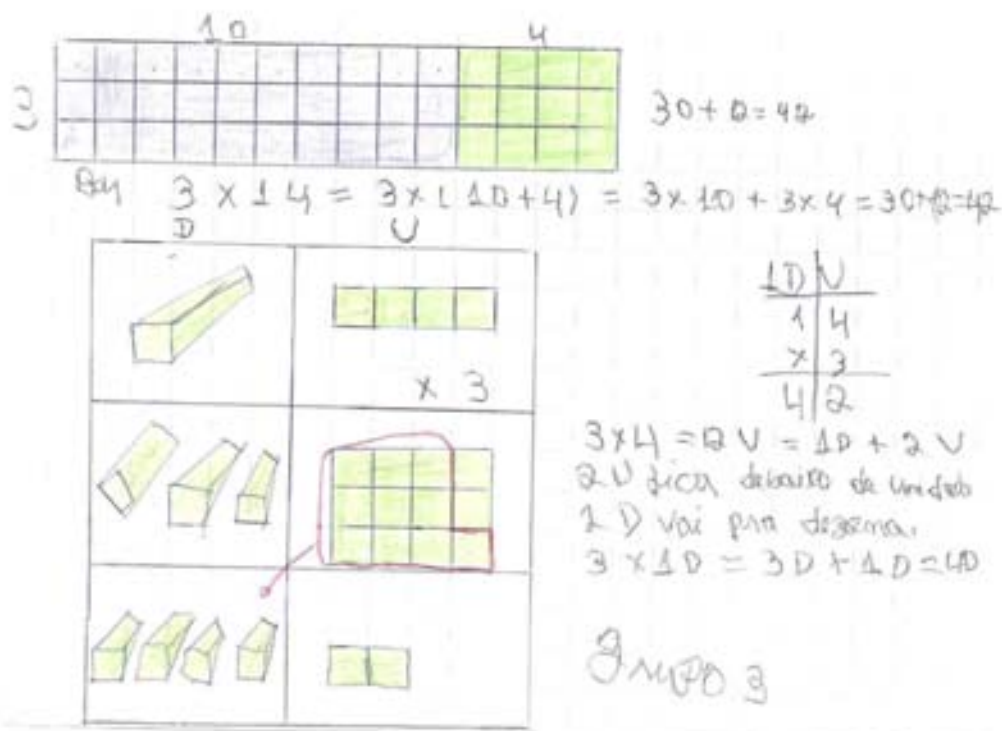 10 4
3
30 + 12 = 42
3 x 14 = 3 x (10+4) = 3 x 10 + 3 x 4 = 30+12=42
D U
x 3
1D U
1 4
x 3
4 2
3 x 4 = 12 U = 1D + 2 U
2 U fica debaixo da unidade
1 D vai pra dezena.
3 x 1D = 3D + 1D = 4D
Grupo 3